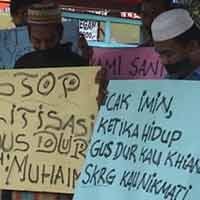 AMI SANT
STOP
ITISASI
US DUR
MUHAIM
CAK IMIN,
KETIKA HIDUP
GUS DUR KAU KHIAN
SKRG KAU NIKMATI